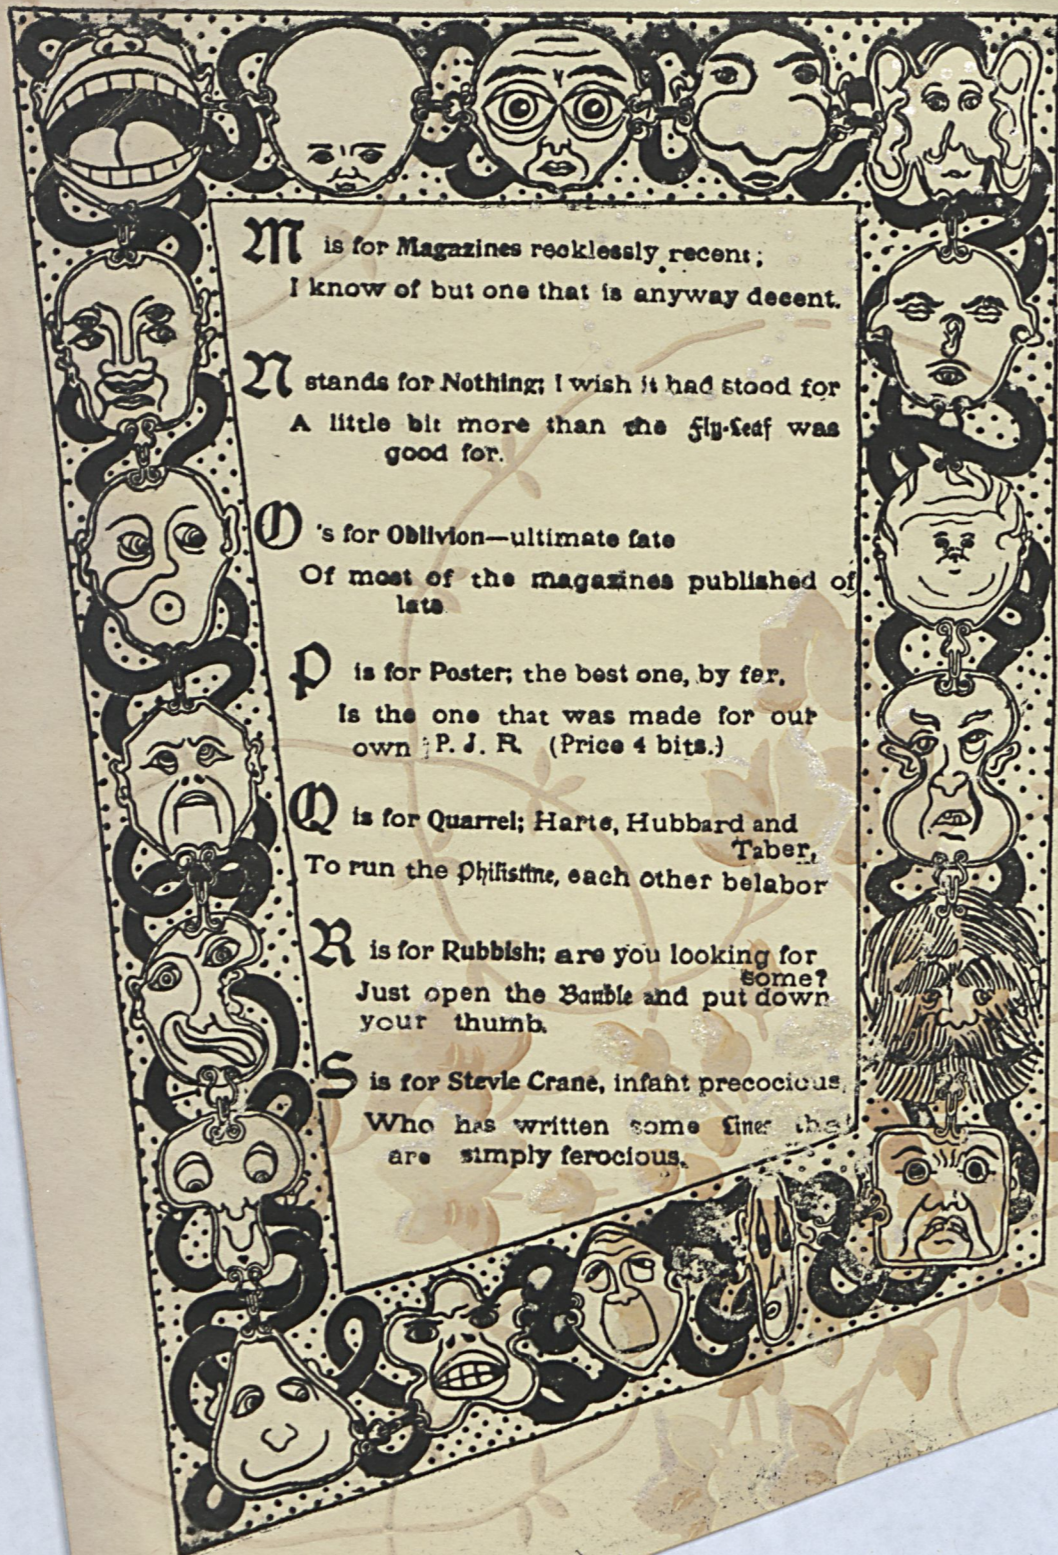 M is for Magazines recklessly recent;
I know of but one that is anyway decent.
N stands for Nothing; I wish it had stood for
A little bit more than the Fly-Leaf was
good for.
O 's for Oblivion—ultimate fate
Of most of the magazines published of
late
P is for Poster; the best one, by far,
Is the one that was made for our
own P. J. R. (Price 4 bits.)
Q is for Quarrel; Harte, Hubbard and
Taber,
To run the Philistine, each other belabor
R is for Rubbish; are you looking for
some?
Just open the Bauble and put down
your thumb.
S is for Stevie Crane, infant precocious,
Who has written some lines that
are simply ferocious.